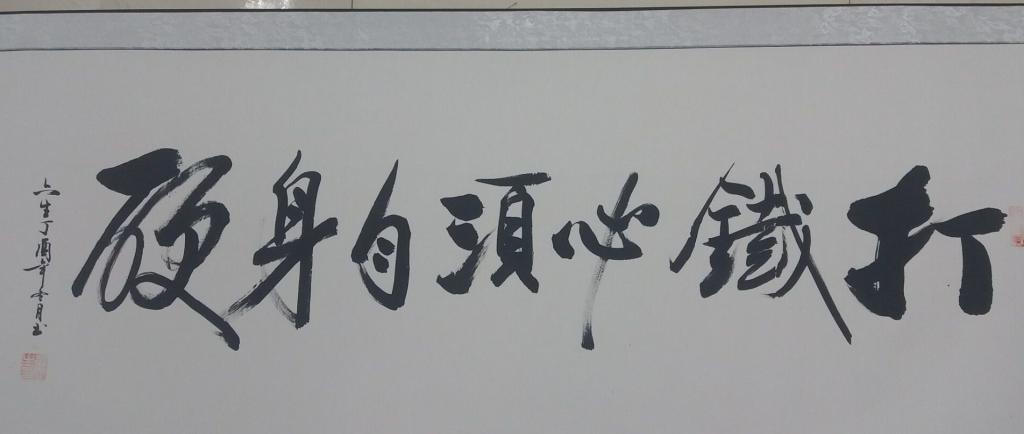 打鐵必須自身硬
六生丁酉年冬月书